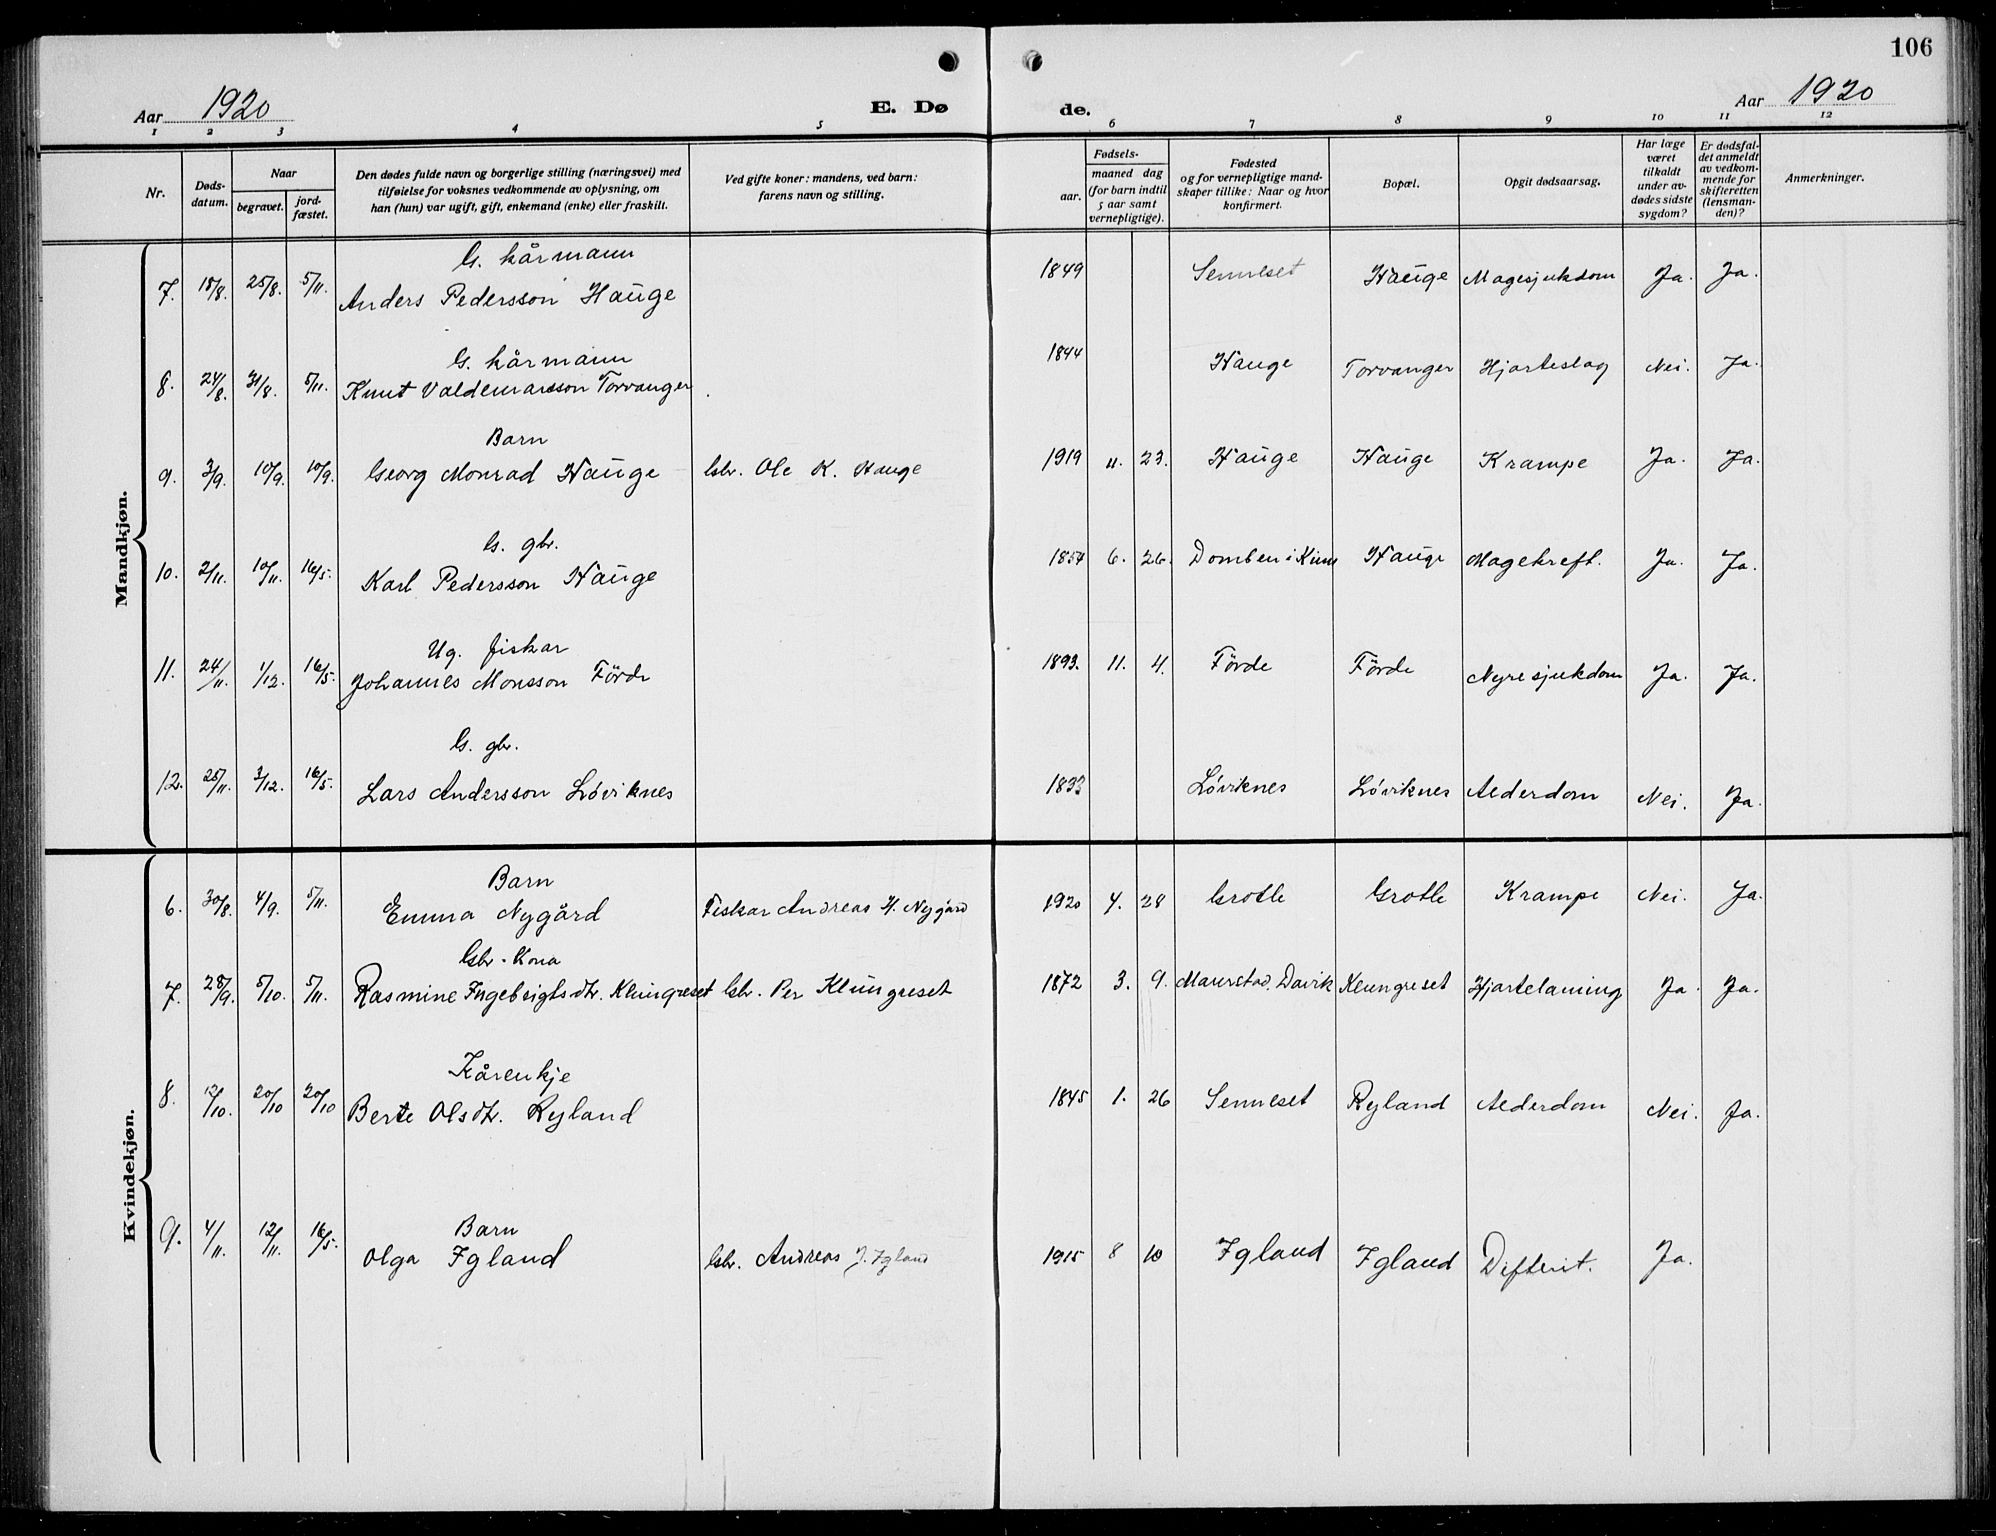 106
Aar 1920
E. Dø
de.
Aar 1920
1 2 3 4 5 6 7 8 9 10 11 12
Nr.
Døds-
datum.
Naar
begravet.
jord-
fæstet.
Den dødes fulde navn og borgerlige stilling (næringsvei) med
tilføielse for voksnes vedkommende av oplysning, om
han (hun) var ugift, gift, enkemand (enke) eller fraskilt.
Ved gifte koner: mandens, ved barn:
farens navn og stilling.
Fødsels-
aar.
maaned dag
(for barn indtil
5 aar samt
vernepligtige).
Fødested
og for vernepligtige mand-
skaper tillike: Naar og hvor
konfirmert.
Bopæl.
Opgit dødsaarsag.
Har læge
været
tilkaldt
under av-
dødes sidste
sygdom?
Er dødsfal-
det anmeldt
av vedkom-
mende for
skifteretten
(lensman-
den)?
Anmerkninger.
Mandkjøn.
G. kårmann
7. 18/8. 25/8. 5/11. Anders Pedersson Hauge 1849 Senneset Hauge Magesjukdom Ja. Ja.
G. kårmann
8. 24/8. 31/8. 5/11. Knut Valdemarsson Torvanger 1844 Hauge Torvanger Hjarteslag Nei. Ja.
Barn
9. 3/9. 10/9. 10/9. Georg Monrad Hauge Gbr. Ole K. Hauge 1919 11. 23. Hauge Hauge Krampe Ja. Ja.
G. gbr.
10. 2/11. 10/11. 16/5. Karl Pedersson Hauge 1854 6. 26. Domben i Kinn Hauge Magekreft. Ja. Ja.
Ug. fiskar
11. 24/11. 1/12. 16/5. Johannes Monsson Förde 1893. 11. 4. Förde Förde Nyresjukdom Ja. Ja.
G. gbr.
12. 25/11. 3/12. 16/5. Lars Andersson Løviknes 1833 Løviknes Løviknes Alderdom Nei. Ja.
Kvindekjøn.
Barn
6. 30/8. 4/9. 5/11. Emma Nygård Fiskar Andreas H. Nygård 1920 4. 28 Grotle Grotle Krampe Nei. Ja.
Gbr. Kona
7. 28/9. 5/10. 5/11. Rasmine Ingebrigtsdtr. Klungreset Gbr. Per Klungreset 1872 3. 9. Maurstad, Davik Klungreset Hjartelaming Ja. Ja.
Kårenkje
8. 12/10. 20/10 20/10 Berte Olsdtr. Ryland 1845 1. 26 Senneset Ryland Alderdom Nei. Ja.
Barn
9. 4/11. 12/11. 16/5. Olga Igland Gbr. Andreas J. Igland 1915 8 10 Igland Igland Difterit. Ja.